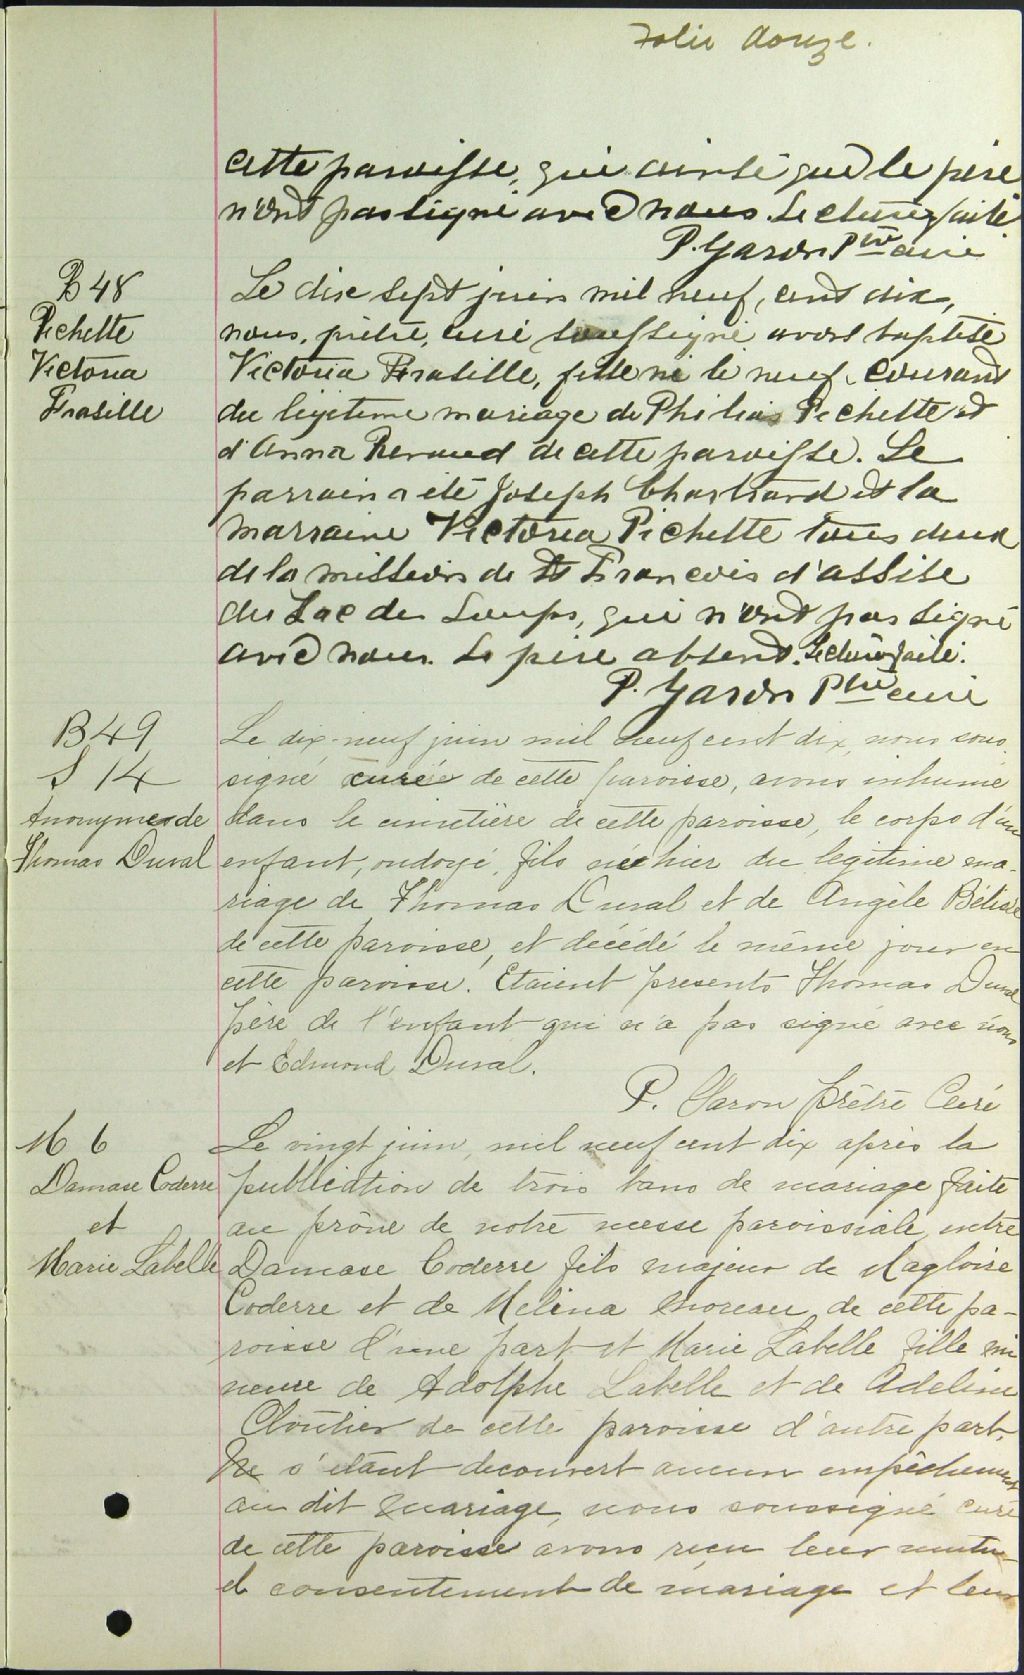 Folio douze.
cette paroisse, qui ainsi que le père
n'ont pas signé avec nous. Lecture faite
P. Garon Ptre curé
B 48
Pichette
Victoria
Frasille
Le dix sept juin mil neuf cent dix,
nous, prêtre, curé soussigné avons baptisé
Victoria Frasille, fille né le neuf courant
du légitime mariage de Philias Pichette et
d'Anna Renaud de cette paroisse. Le
parrain a été Joseph Chartrand et la
marraine Victoria Pichette tous deux
de la mission de St François d'assise
du Lac des Loups, qui n'ont pas signé
avec nous. Le père absent. Lecture faite.
P. Garon Ptre curé
B 49
S 14
Anonyme de
Thomas Duval
Le dix-neuf juin mil neuf cent dix, nous sous
signé curé de cette paroisse, avons inhumé
dans le cimetière de cette paroisse, le corps d'un
enfant, ondoyé, fils né hier du legitime ma-
riage de Thomas Duval et de Angèle Bélisle
de cette paroisse, et décédé le même jour en
cette paroisse. Etaient presents Thomas Duval
père de l'enfant qui n'a pas signé avec nous
et Edmond Duval.
P. Garon prêtre Curé
M 6
Damase Coderre
et
Marie Labelle
Le vingt juin, mil neuf cent dix après la
publication de trois bans de mariage faite
au prône de notre messe paroissiale entre
Damase Coderre fils majeur de Magloire
Coderre et de Melina Moreau de cette pa-
roisse d'une part et Marie Labelle fille mi
neure de Adolphe Labelle et de Adeline
Cloutier de cette paroisse d'autre part.
Ne s'etant decouvert aucun empêchement
au dit mariage, nous soussigné curé
de cette paroisse avons reçu leur mutu-
el consentement de mariage et leur